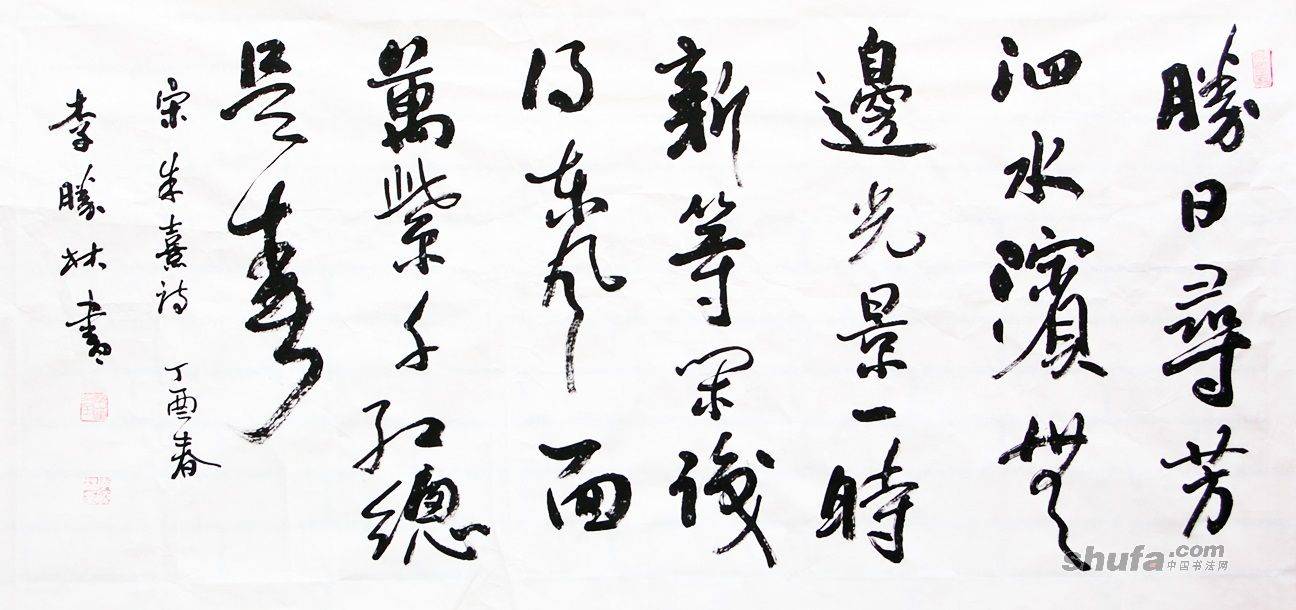 勝日尋芳
泗水濱無
邊光景一時
新等閑識
得東風面
萬紫千紅總
是春
宋朱熹詩 丁酉春
李勝林書
shufa.com
中国书法网